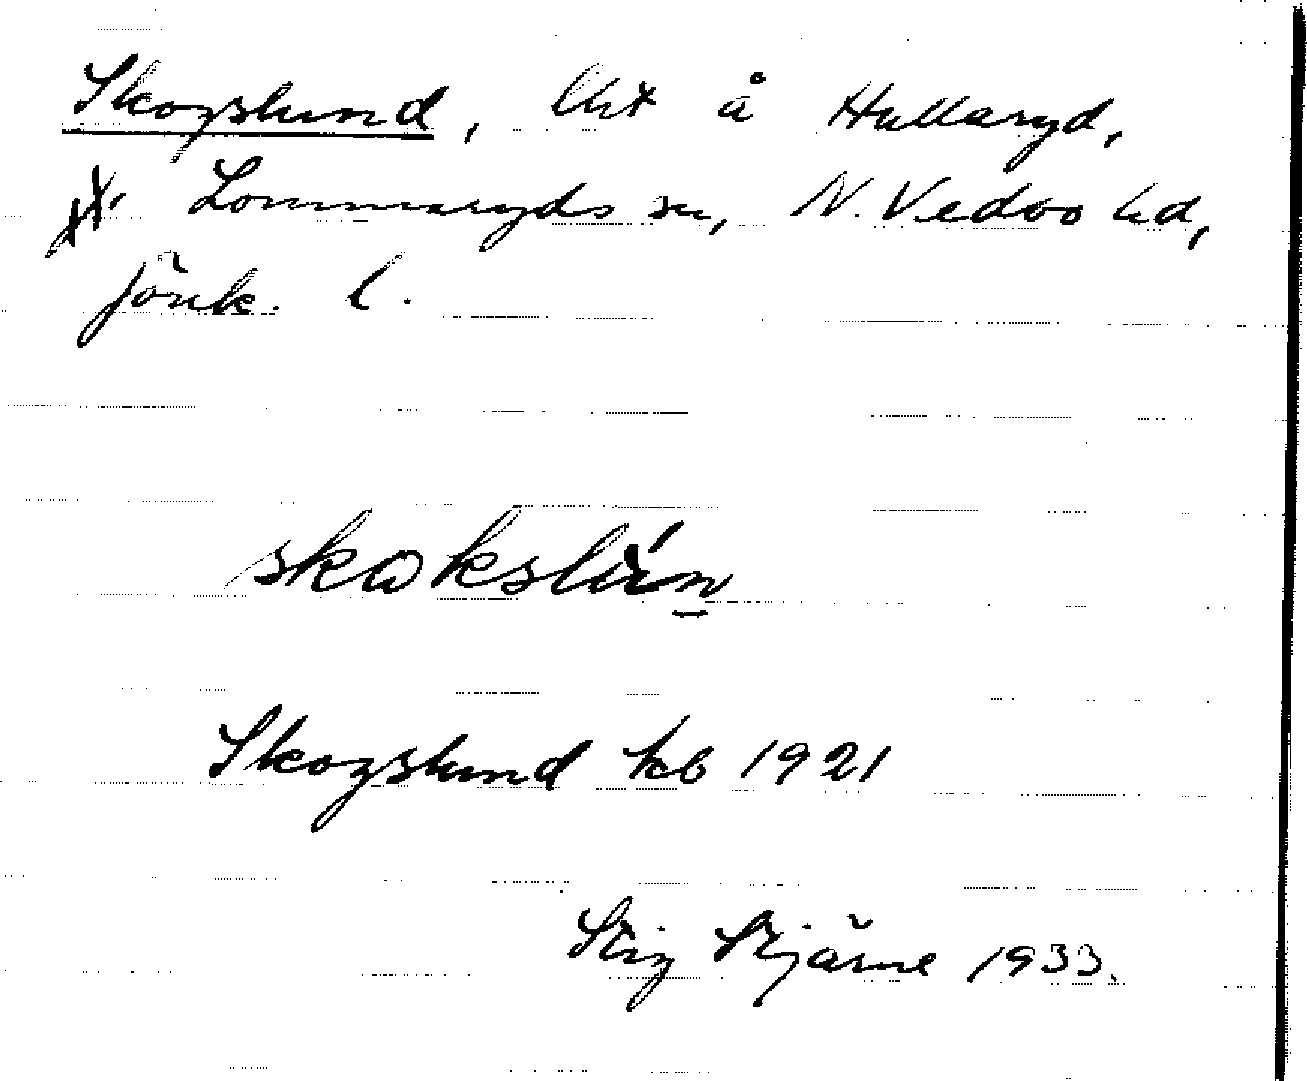 Skogslund, lht å Hullaryd,
Lommaryds sn, N. Vedbo hd,
Jönk. l.
skɷkslún̲
Skogslund kb 1921
Stig Stjärne 1933.